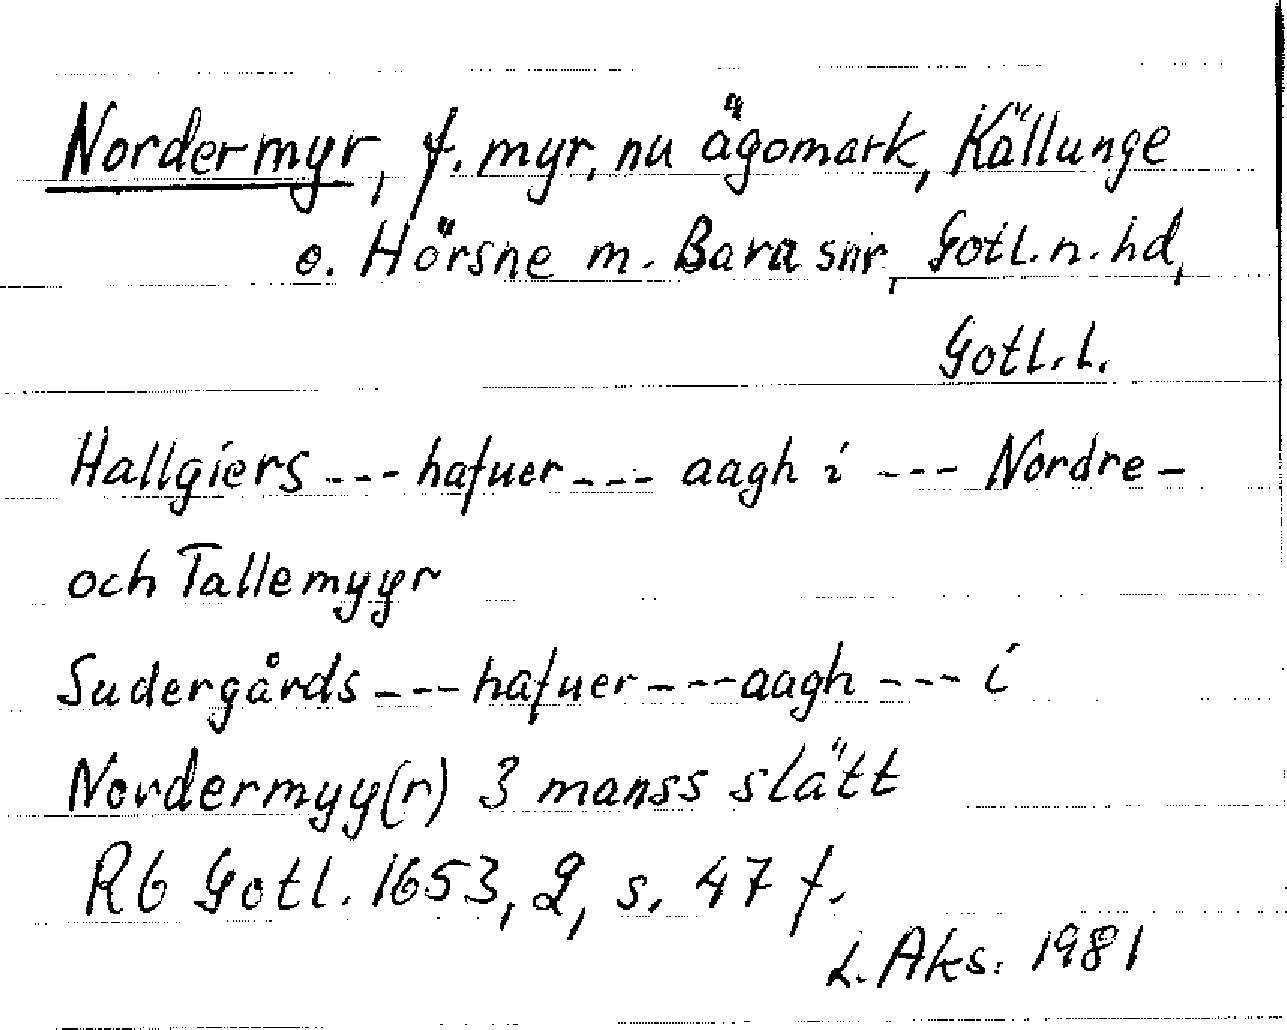 Nordermyr, f. myr, nu ägomark, Källunge
o. Hörsne m. Bara snr, Gotl. n. hd,
Gotl. l.
Hallgiers --- hafuer --- aagh i --- Nordre-
och Tallemyyr
Sudergårds --- hafuer --- aagh --- i
Nordermyy(r) 3 manss slätt
Rb Gotl. 1653, 2, s. 47 f.
L. Aks. 1981